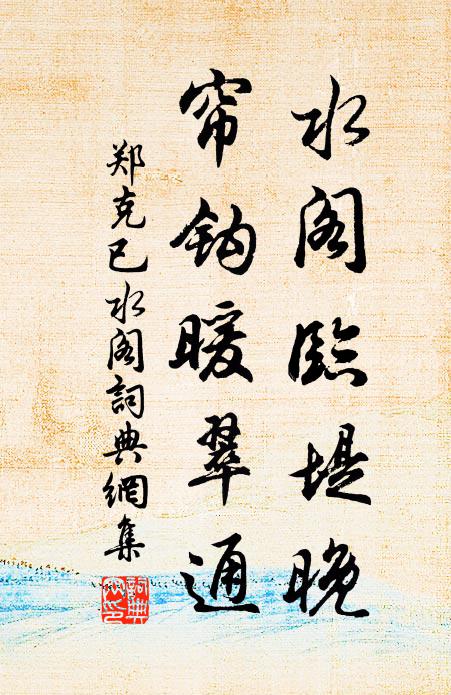 水阁臨堤晚
帘钩暖翠通
郑克己水阁詞典網集